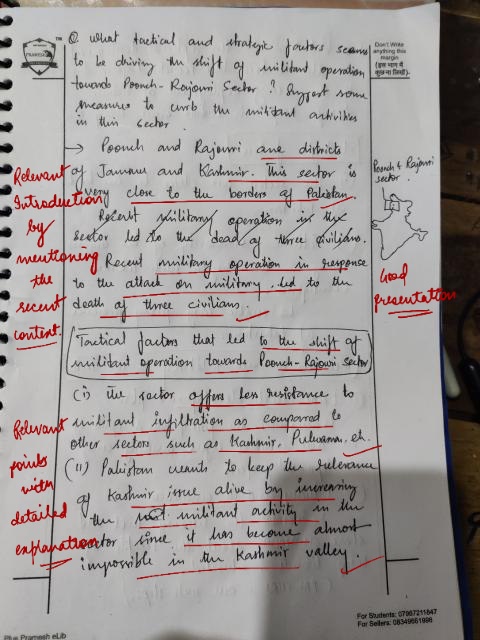 Q. What tactical and strategic factors seems
to be driving the shift of militant operation
towards Poonch-Rajouri Sector? Suggest some
measures to curb the militant activities
in this sector
Don't Write
anything this
margin
(इस भाग में
कुछ ना लिखें)
→ Poonch and Rajouri are districts
of Jammu and Kashmir. This sector is
very close to the borders of Pakistan.
Recent military operation in the
sector led to the dead of three civilians.
Recent military operation in response
to the attack on military led to the
death of three civilians.
Relevant
Introduction
by
mentioning
the
recent
content.
Poonch & Rajouri
sector
Good
presentation
Tactical factors that led to the shift of
militant operation towards Poonch-Rajouri Sector
(i) The sector offers less resistance to
militant infiltration as compared to
other sectors such as Kashmir, Pulwama, etc.
(ii) Pakistan wants to keep the relevance
of Kashmir issue alive by increasing
the militant activity in the
sector since it has become almost
impossible in the Kashmir valley.
Relevant
points
with
detailed
explanation
For Students: 07967211847
For Sellers: 08349661996
Plus Pramesh eLib